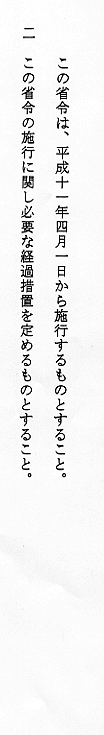 この省令は、平成十一年四月一日から施行するものとすること。
二　この省令の施行に関し必要な経過措置を定めるものとすること。